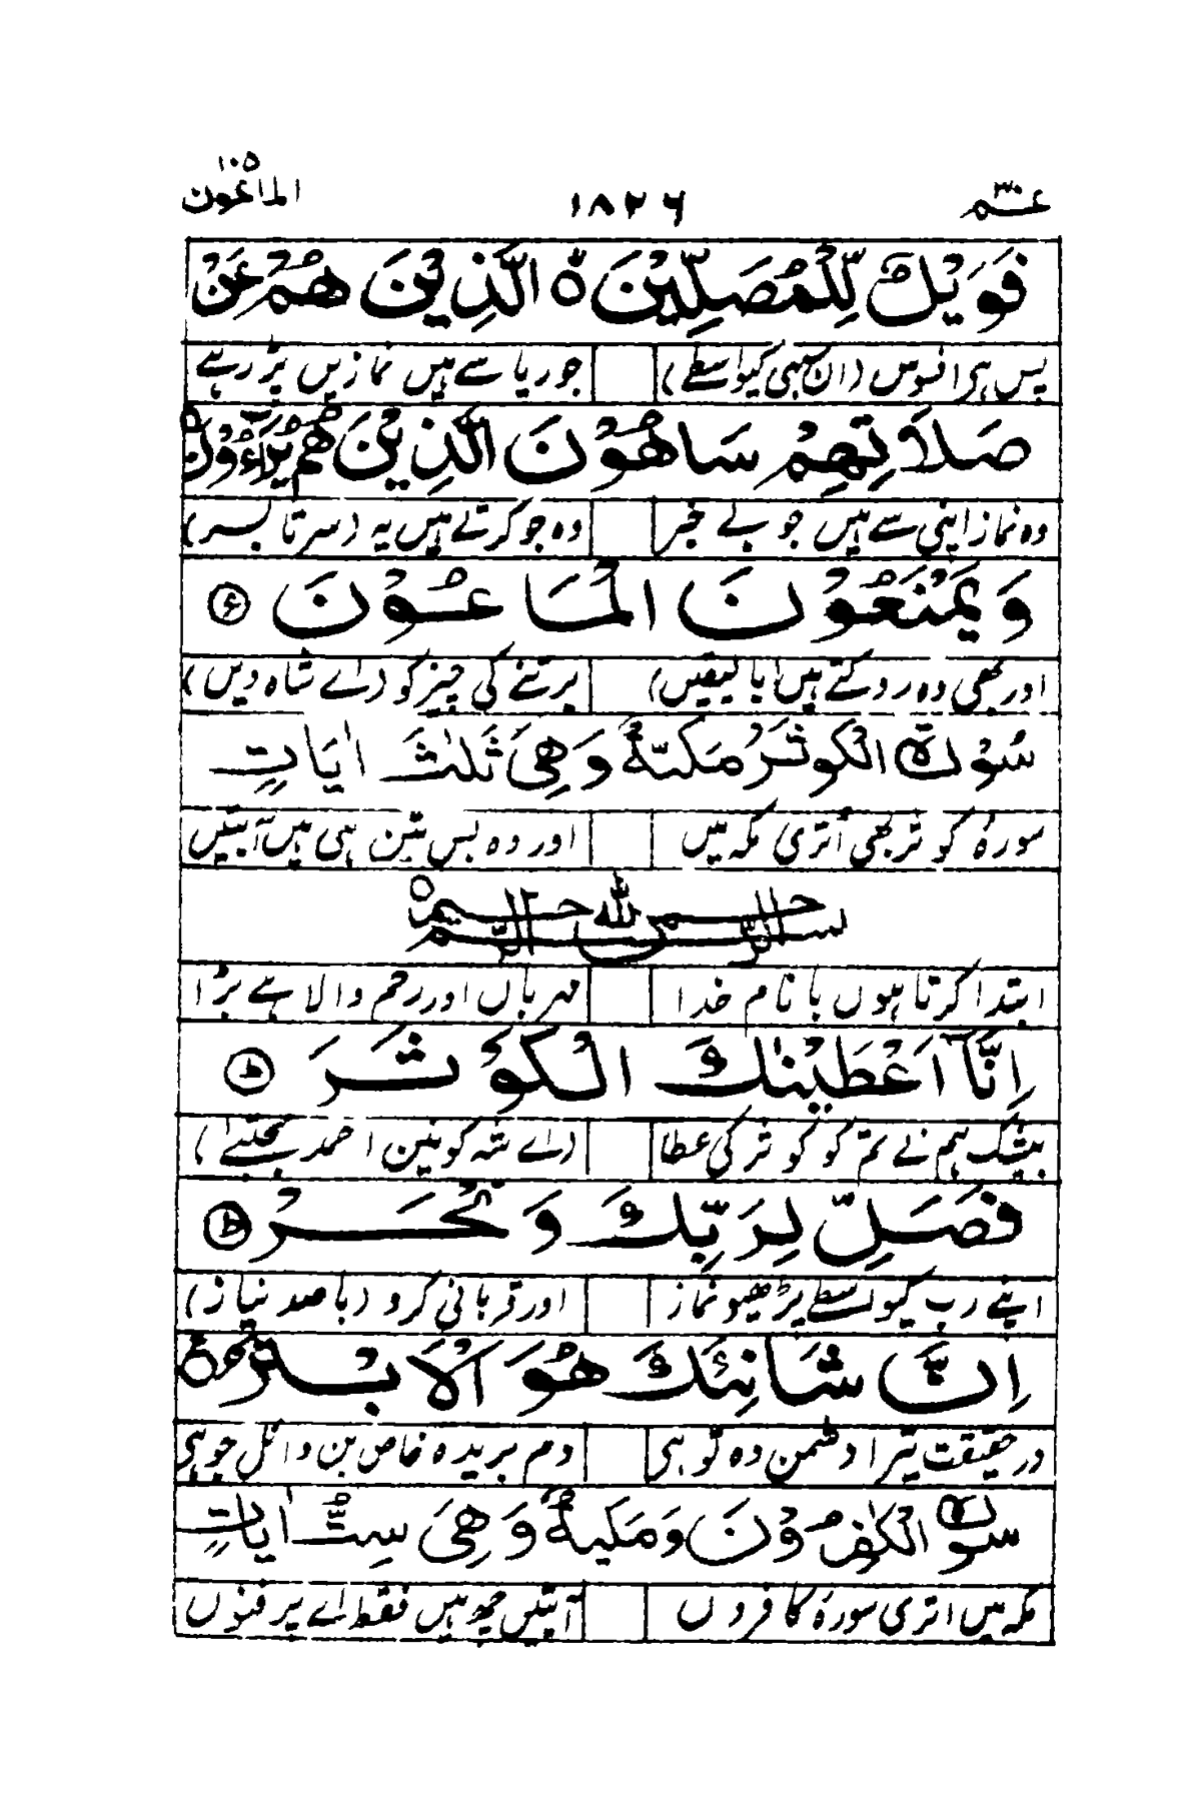 عم ٣٠ ١٨٢٦ الماعون ١٠٥
فَوَيْلٌ لِّلْمُصَلِّيْنَ ه الَّذِيْنَ هُمْ عَنْ
پس ہی افسوس (ان سبھی کیواسطے) جو ریا سے ہیں نمازیں پڑ رہے
صَلَاتِهِمْ سَاهُوْنَ الَّذِيْنَ هُمْ يُرَآءُوْنَ
وہ نماز اپنی سے ہیں جو بے خبر وہ جو کرتے ہیں یہ (سر تا بسر)
وَيَمْنَعُوْنَ الْمَاعُوْنَ
اور بھی وہ روکتے ہیں (با لیقیں) برتنے کی چیز کو (اے شاہ دیں)
سُوْرَةُ الْكَوْثَرُ مَكِّيَّةٌ وَهِيَ ثَلٰثَ اٰيَاتٍ
سورۂ کوثر بھی اُتری مکہ میں اور وہ بس تین ہی ہیں آیتیں
بسم الله الرحمن الرحيم ه
ابتدا کرتا ہوں با نام خدا مہرباں اور رحم والا ہے بڑا
اِنَّآ اَعْطَيْنٰكَ الْكَوْثَرَ ط
بیشک ہم نے تم کو کوثر کی عطا (اے شہ کونین احمد مجتبےٰ)
فَصَلِّ لِرَبِّكَ وَنْحَرْ ط
اپنے رب کیواسطے پڑھیو نماز اور قربانی کرو (با صد نیاز)
اِنَّ شَانِئَكَ هُوَ الْاَبْتَرُ
در حقیقت تیرا دشمن وہ توہی دم بریدہ عاص بن وائل جوہی
سورة الْكٰفِرُوْنَ وَمَكِيةٌ وَهِيَ سِتُّ اٰيَاتٍ
مکہ میں اتری سورۂ کافروں آیتیں چھ ہیں فقط اے پر فنوں